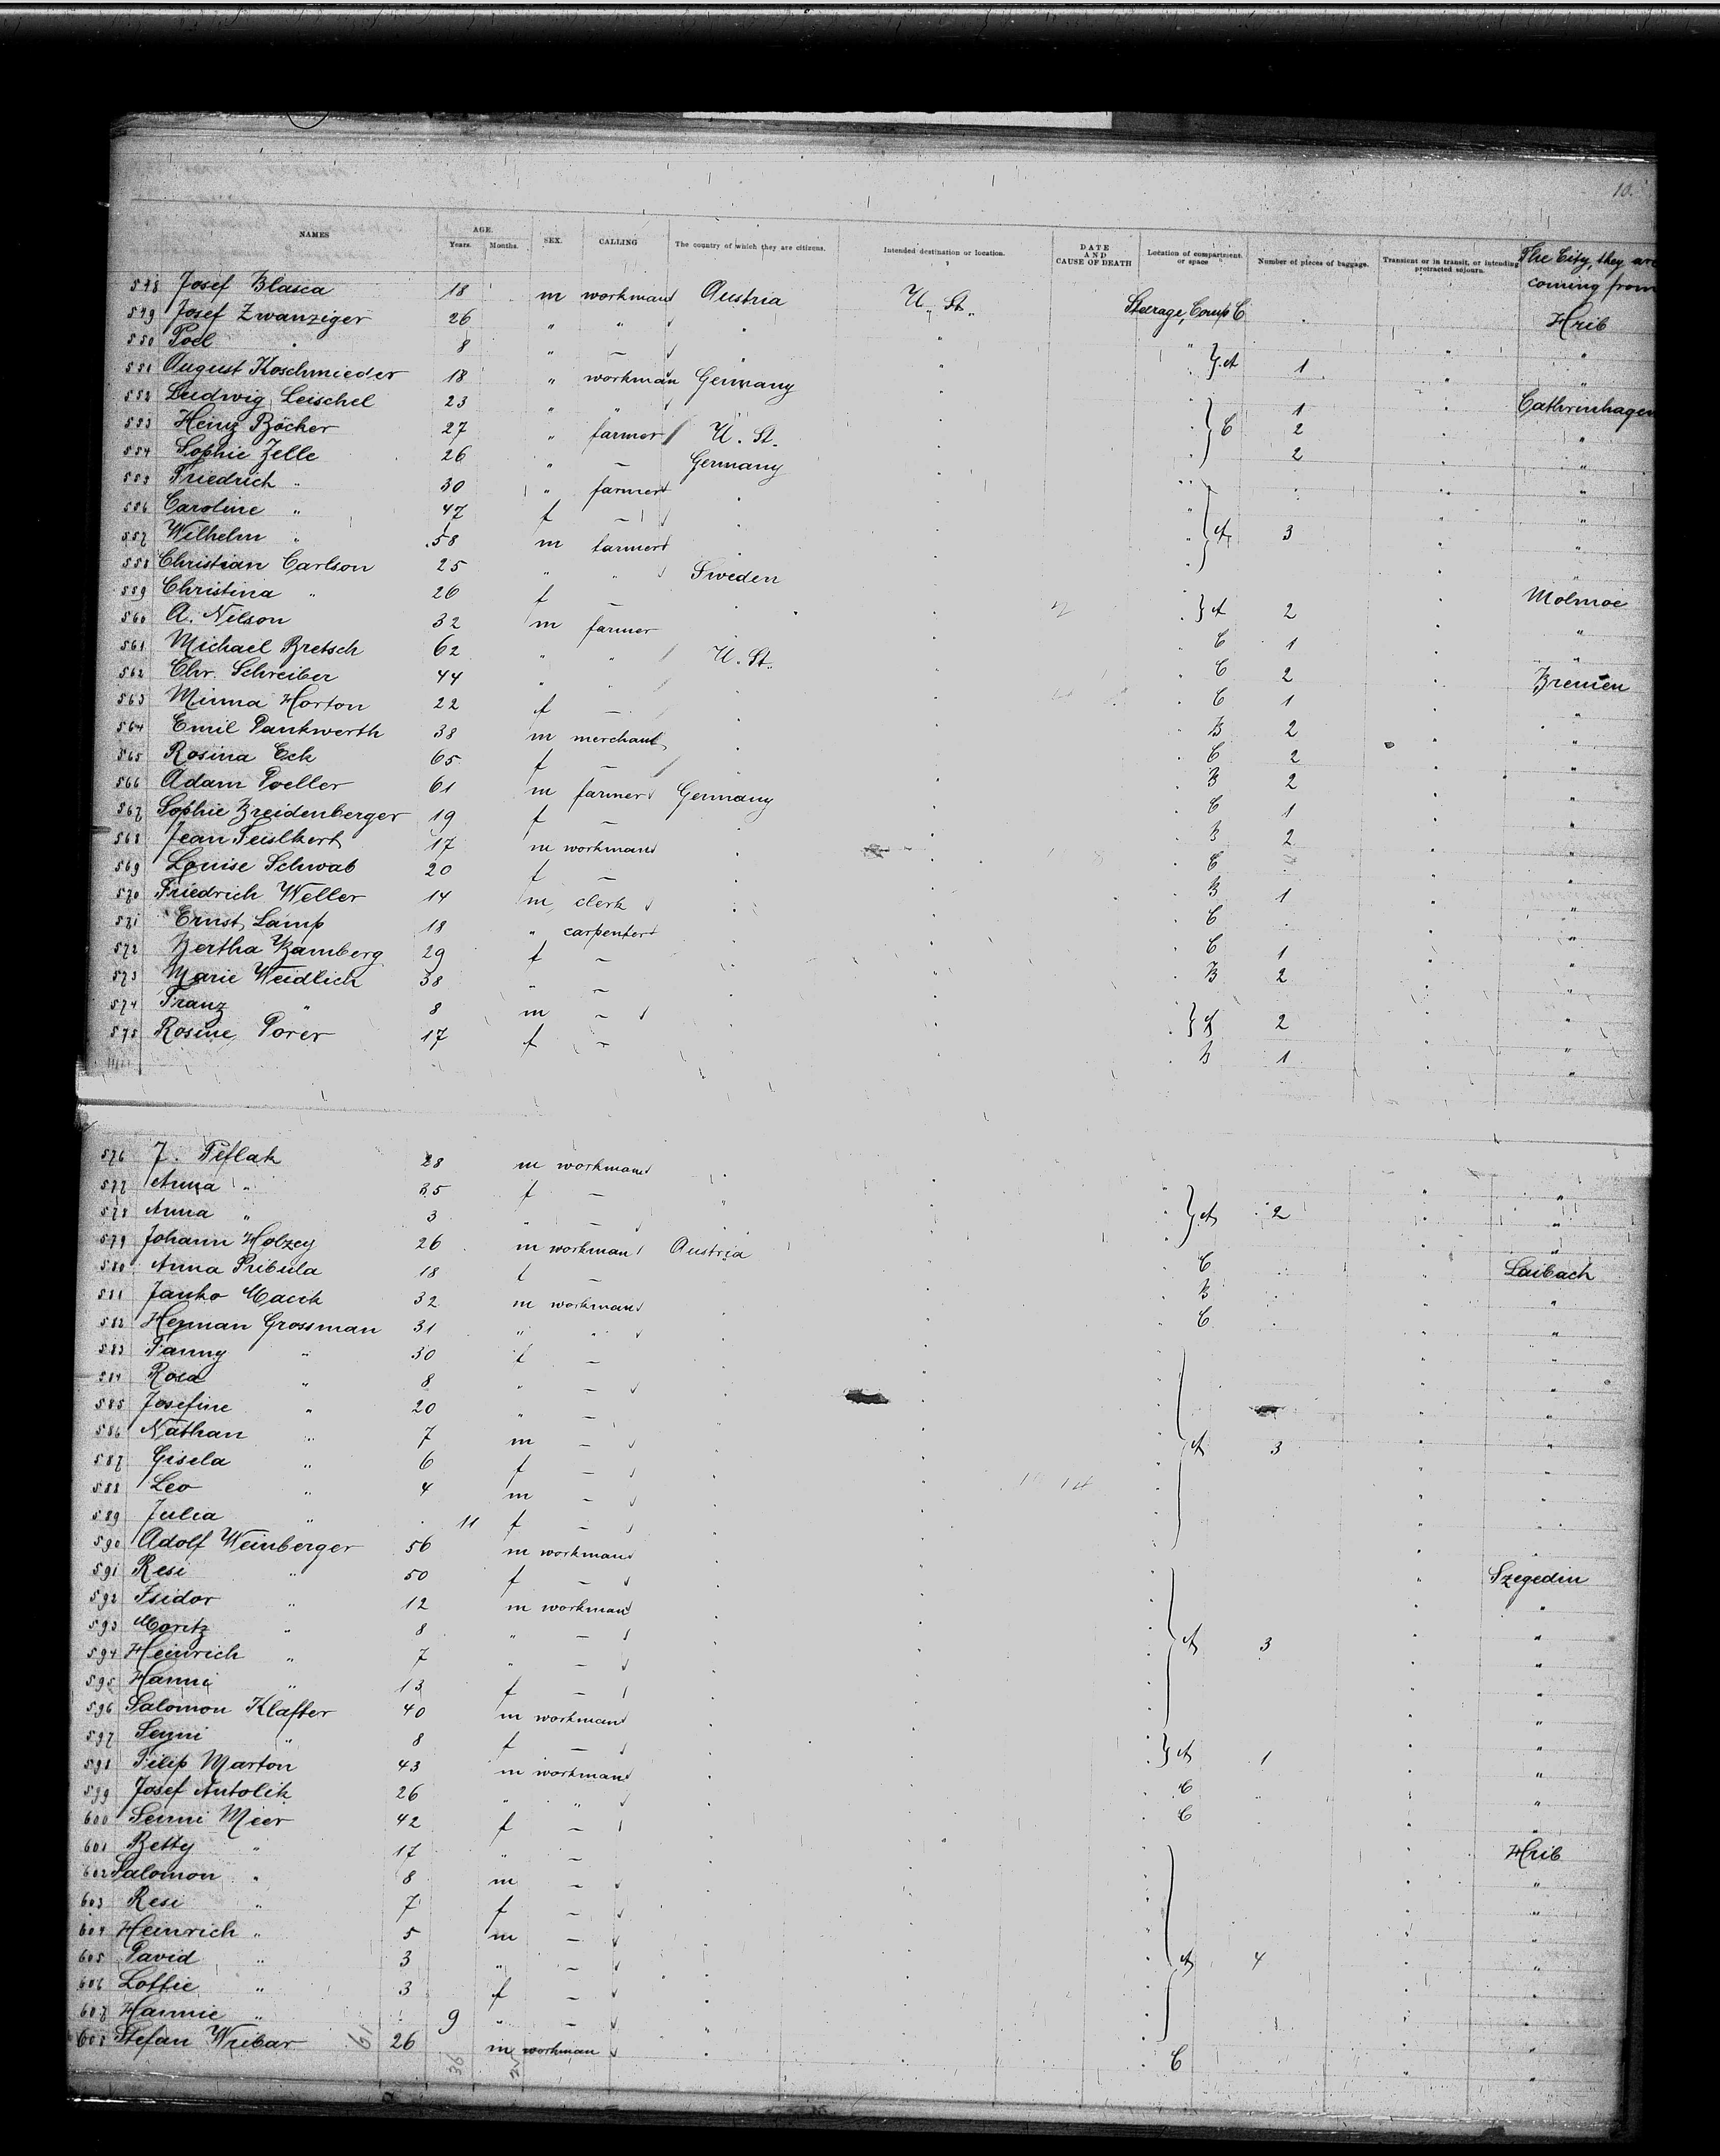 10.
NAMES AGE. Years. Months. SEX. CALLING The country of which they are citizens. Intended destination or location. DATE AND CAUSE OF DEATH Location of compartment or space Number of pieces of baggage. Transient or in transit, or intending protracted sojourn. The City, they are coming from
548 Josef Blasca 18 m workman Austria U. St. Steerage, Comp C Hrib
549 Josef Zwanziger 26 " " "
550 Poel 8 " — } A 1 "
551 August Koschmieder 18 " workman Germany 1 Cathrinhagen
552 Ludwig Leischel 23 " " } C 2 "
553 Heinz Böcher 27 " farmer U. St. 2 "
554 Sophie Zelle 26 " — Germany "
555 Friedrich " 30 " farmer "
556 Caroline " 47 f — } A 3 "
557 Wilhelm " 58 m farmer "
558 Christian Carlson 25 " " Sweden Molmoe
559 Christina " 26 f — } A 2 "
560 A. Nilson 32 m farmer C 1 "
561 Michael Bretsch 62 " " U. St. C 2 Bremen
562 Chr. Schreiber 44 " " C 1 "
563 Minna Horton 22 f — B 2 "
564 Emil Pankwerth 38 m merchant C 2 "
565 Rosina Eck 65 f — B 2 "
566 Adam Poeller 61 m farmer Germany C 1 "
567 Sophie Breidenberger 19 f — B 2 "
568 Jean 17 m workman C "
569 Louise Schwab 20 f — B 1 "
570 Friedrich Weller 14 m clerk C "
571 Ernst Lamp 18 " carpenter C 1 "
572 Bertha Bamberg 29 f — B 2 "
573 Marie Weidlich 38 " — "
574 Franz " 8 m — } A 2 "
575 Rosine Porer 17 f — B 1 "
576 J. Peflak 28 m workman "
577 Anna " 35 f — } A 2 "
578 Anna " 3 " — "
579 Johann Holzey 26 m workman Austria C Laibach
580 Anna Pribula 18 f — B "
581 Janko Macek 32 m workman C "
582 Herman Grossman 31 " " "
583 Fanny " 30 f — "
584 Rosa " 8 " — "
585 Josefine " 20 " — "
586 Nathan " 7 m — } A 3 "
587 Gisela " 6 f — "
588 Leo " 4 m — "
589 Julia " 11 f — "
590 Adolf Weinberger 56 m workman Szegedin
591 Resi " 50 f — "
592 Isidor " 12 m workman "
593 Moritz " 8 " — } A 3 "
594 Heinrich " 7 " — "
595 Hanni " 13 f — "
596 Salomon Klafter 40 m workman "
597 Senni " 8 f — } A 1 "
598 Filip Marton 43 m workman C "
599 Josef Antolik 26 " " C "
600 Senni Meer 42 f — Hrib
601 Betty " 17 " — "
602 Salomon " 8 m — "
603 Resi " 7 f — "
604 Heinrich " 5 m — } A 4 "
605 David " 3 " — "
606 Lottie " 3 f — "
607 Hannie " 9 " — "
608 Stefan Wribar 26 m workman C "
61 36 25